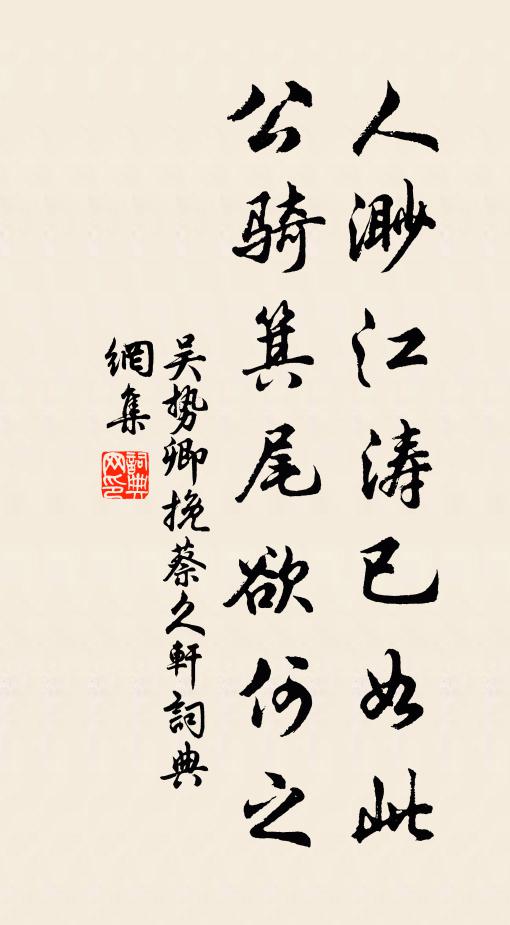 人渺江涛已如此
公骑箕尾欲何之
吴势卿挽蔡久軒詞典
網集
詞典网印